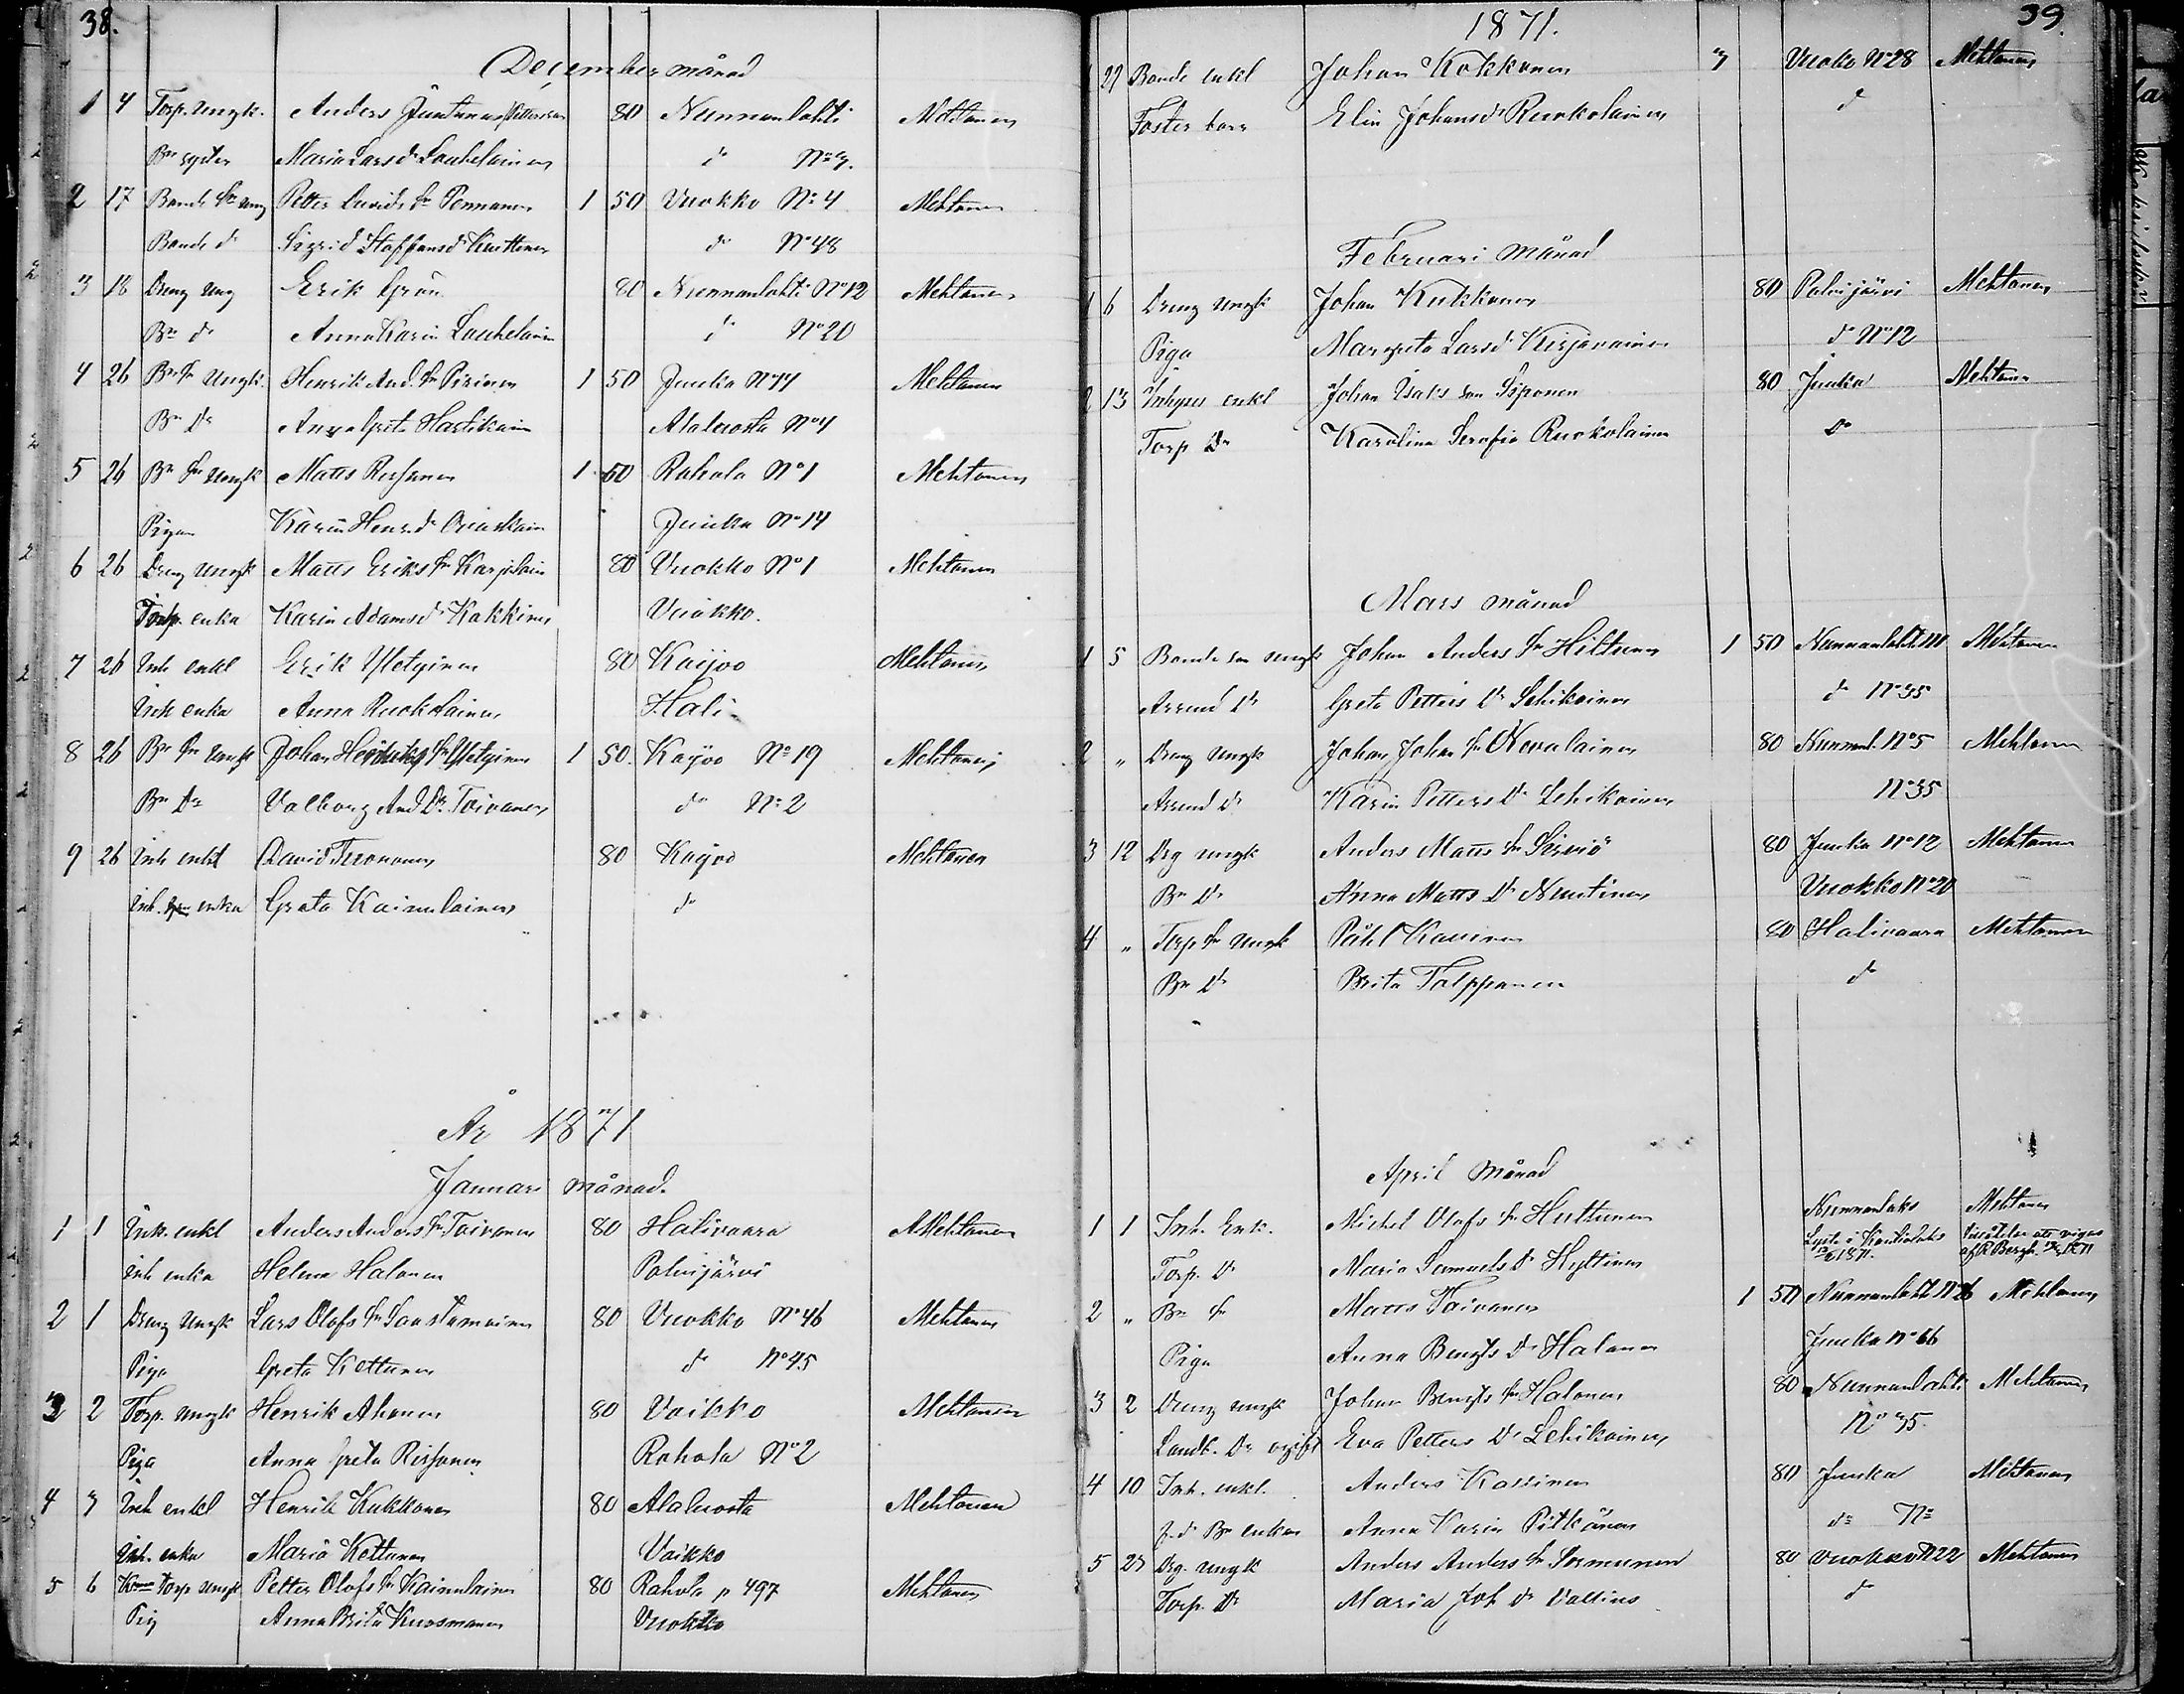 38.
December månad
1 4 Torp. ungk. Anders Juntunen 80 Nunnanlahti Mehtonen
Bn Maria Larsdr Laukelainen do No 3.
2 17 Bonde Sn ung Petter Davids Sn Pennanen 1 50 Vuokko No 4 Mehtonen
Bonde dr Sigrid Staffansdr Kuittinen do No 48
3 18 Dreng ung Erik Grön 80 Nunnanlahti No 12 Mehtonen
Bn dr Anna Karin Laukelainen do No 20
4 26 Bn Sn Ungk. Henrik And. Sn Pirinen 1 50 Juuka No 44 Mehtonen
Bn Dr Anna Greta Hartikain Alaluosta No 4
5 26 Bn Sn Ungk Matts 1 50 Rahola No 1 Mehtonen
Pigan Karin Henr.dr Juuka No 14
6 26 Dreng ungk Matts Eriks Sn Karjalain 80 Vuokko No 1 Mehtonen
Torp. enka Karin Adamsdr Kokkinen Vuokko.
7 26 Inh enkl Erik 80 Kajoo Mehtonen
Inh enka Anna Ruokolainen Hali
8 26 Bn Sn Ungk Johan Henriks Sn 1 50. Kajoo No 19 Mehtonen
Bn Dr Valborg And Dr Toivanen do No 2
9 26 Inh enkl David Turonen 80 Kajoo Mehtonen
Inh. enka Greta Kainulainen do
År 1871
Januari månad.
1 1 Inh. enkl Anders Anders Sn Toivonen 80 Halivaara Mehtonen
Inh enka Helena Halonen Polvijärvi
2 1 Dreng Ungk Lars Olofs Sn Saastamoinen 80 Vuokko No 46 Mehtonen
Piga Greta Kettunen do No 45
3 2 Torp. ungk Henrik Ahonen 80 Vaikko Mehtonen
Piga Anna Greta Rissanen Rahola No 2
4 3 Inh enkl Henrik Kukkonen 80 Alaluosta Mehtonen
Inh. enka Maria Kettunen Vaikko
5 6 torp ungk Petter Olofs Sn Kainulainen 80 Rahola p 497 Mehtonen
Pig Anna Brita Kuosmanen Vuokko
1871.
39.
22 Bonde enkl Johan Kokkonen 3 Vuoko No 28 Mehtonen
Foster barn Elin Johansdr Ruokolainen do
Februari månad
1 6 Dreng ungk Johan Kukkonen 80 Polvijärvi Mehtonen
Piga Margreta Larsdr Kirjavainen do No 12
2 13 Inhyses enkl Johan Isaks son Siponen 80 Juuka Mehtonen
Torp Dr Karolina Serafia Ruokolainen do
Mars månad
1 5 Bonde son ungk Johan Anders Sn Hiltunen 1 50 Nunnanlahti Mehtonen
Arrend Dr Greta Petters Dr Lehikoinen do No 35
2 " Dreng ungk Johan Johan Sn Nevalainen 80 Nunnanl. No 5 Mehtonen
Arrend Dr Karin Petters Dr Lehikoinen No 35
3 12 Drg ungk Anders Matts Sn Sirviö 80 Juuka No 12 Mehtonen
Bn Dr Anna Matts Dr Nuutinen Vuokko No 20
4 " Torp Sn ungk Påhl Kauinen 80 Halivaara Mehtonen
Bn Dr Brita Tolppanen do
April månad
1 1 Inh. Enk. Michel Olofs Sn Huttunen Nunnanlaks Mehtonen
Torp. Dr Maria Samuels Dr Hyttinen
2 " Bn Sn Matts Toivanen 1 50 Nunnanlahti Mehtonen
Piga Anna Bengts Dr Halonen Juuka No 66
3 2 Dreng ungk Johan Bengts Sn Halonen 80 Nunnanlahti Mehtonen
Landb. Dr ogift Eva Petters Dr Lehikoinen No 35.
4 10 Inh. enkl. Anders Kortinen 80 Juuka Mehtonen
f.d. Bn enkan Anna Karin Pitkänen do No
5 23 Drg. ungk Anders Anders Sn Sormunen 80 Vuokko No 22 Mehtonen
Torp. Dr Maria Joh Dr Vallius do